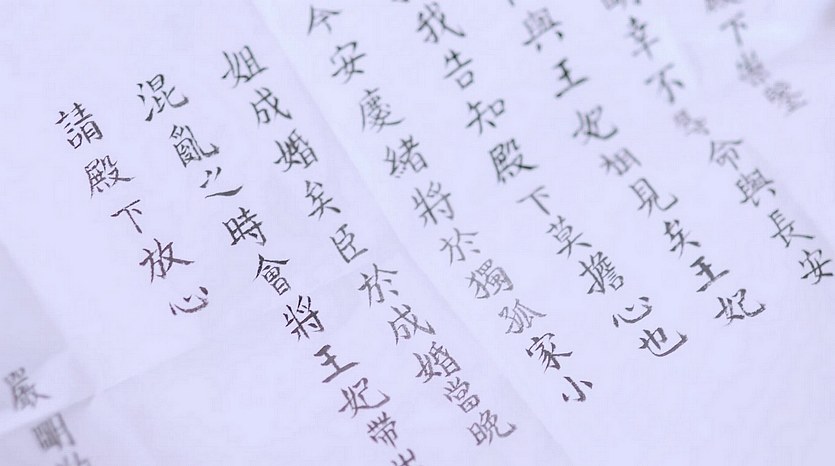 下
幸不辱命與長安
與王妃相見矣王妃
我告知殿下莫擔心也
今安慶緒將於獨孤家小
姐成婚矣臣於成婚當晚
混亂之時會將王妃帶出
請殿下放心
嚴明